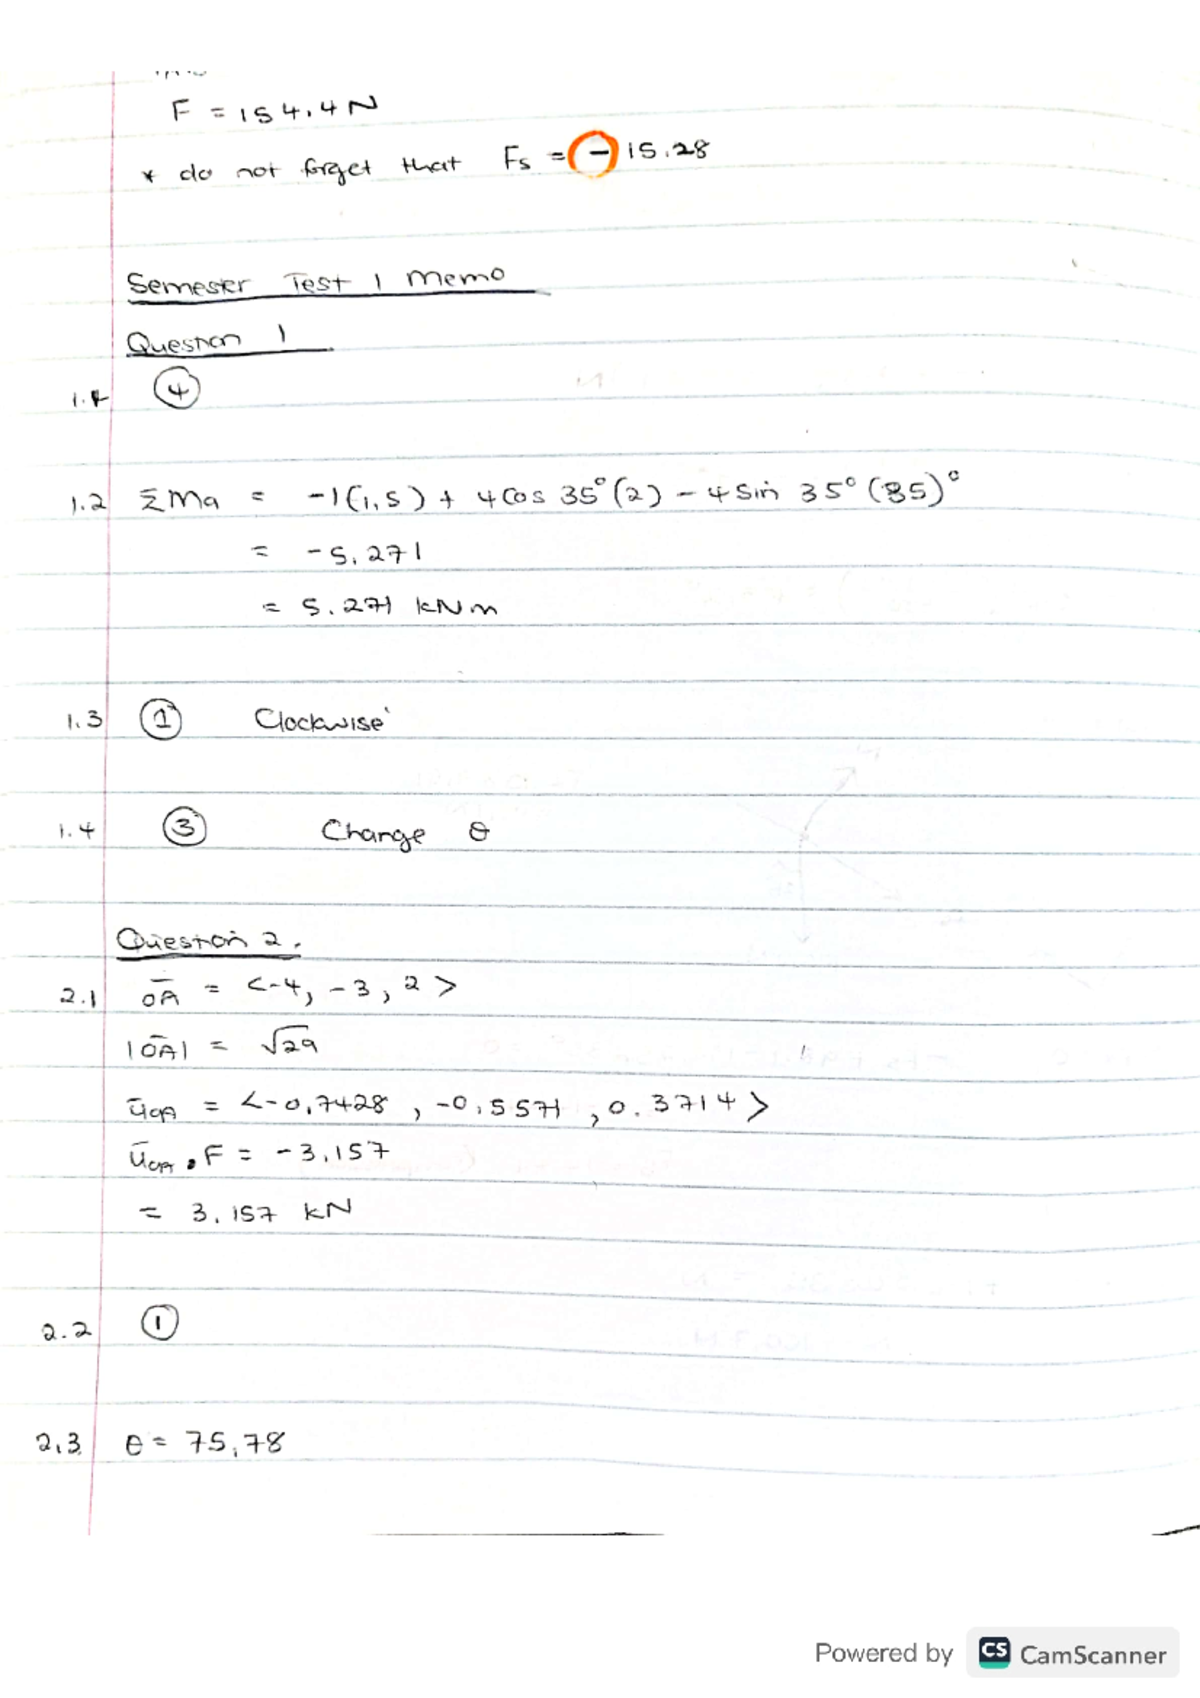 F = 154.4 N
* do not forget that Fs = -15.28
Semester Test 1 Memo
Question 1
1.1 ④
1.2 ΣMa = -1(1,5) + 4 Cos 35°(2) - 4 Sin 35° (85)°
= -5,271
= 5.271 kNm
1.3 ① Clockwise
1.4 ③ Change θ
Question 2.
2.1 OA = <-4, -3, 2>
|OA| = √29
uOA = <-0,7428, -0,5571, 0.3714>
uOA • F = -3,157
= 3.157 kN
2.2 ①
2,3 θ = 75,78
Powered by CS CamScanner